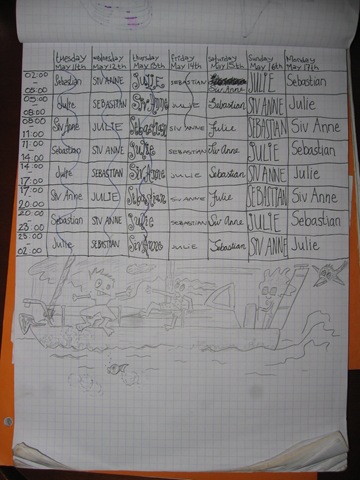 Tuesday Wednesday Thursday Friday Saturday Sunday Monday
May 11th May 12th May 13th May 14th May 15th May 16th May 17th
02:00 - 05:00 Sebastian SIV ANNE JULIE SEBASTIAN Siv Anne JULIE Sebastian
05:00 - 08:00 Julie SEBASTIAN Siv Anne JULIE Sebastian SIV ANNE Julie
08:00 - 11:00 Siv Anne JULIE Sebastian SIV ANNE Julie SEBASTIAN Siv Anne
11:00 - 14:00 Sebastian SIV ANNE Julie SEBASTIAN Siv Anne JULIE Sebastian
14:00 - 17:00 Julie SEBASTIAN Siv Anne JULIE Sebastian SIV ANNE Julie
17:00 - 20:00 Siv Anne JULIE Sebastian SIV ANNE Julie SEBASTIAN Siv Anne
20:00 - 23:00 Sebastian SIV ANNE Julie SEBASTIAN Siv Anne JULIE Sebastian
23:00 - 02:00 Julie SEBASTIAN Siv Anne JULIE Sebastian SIV ANNE Julie